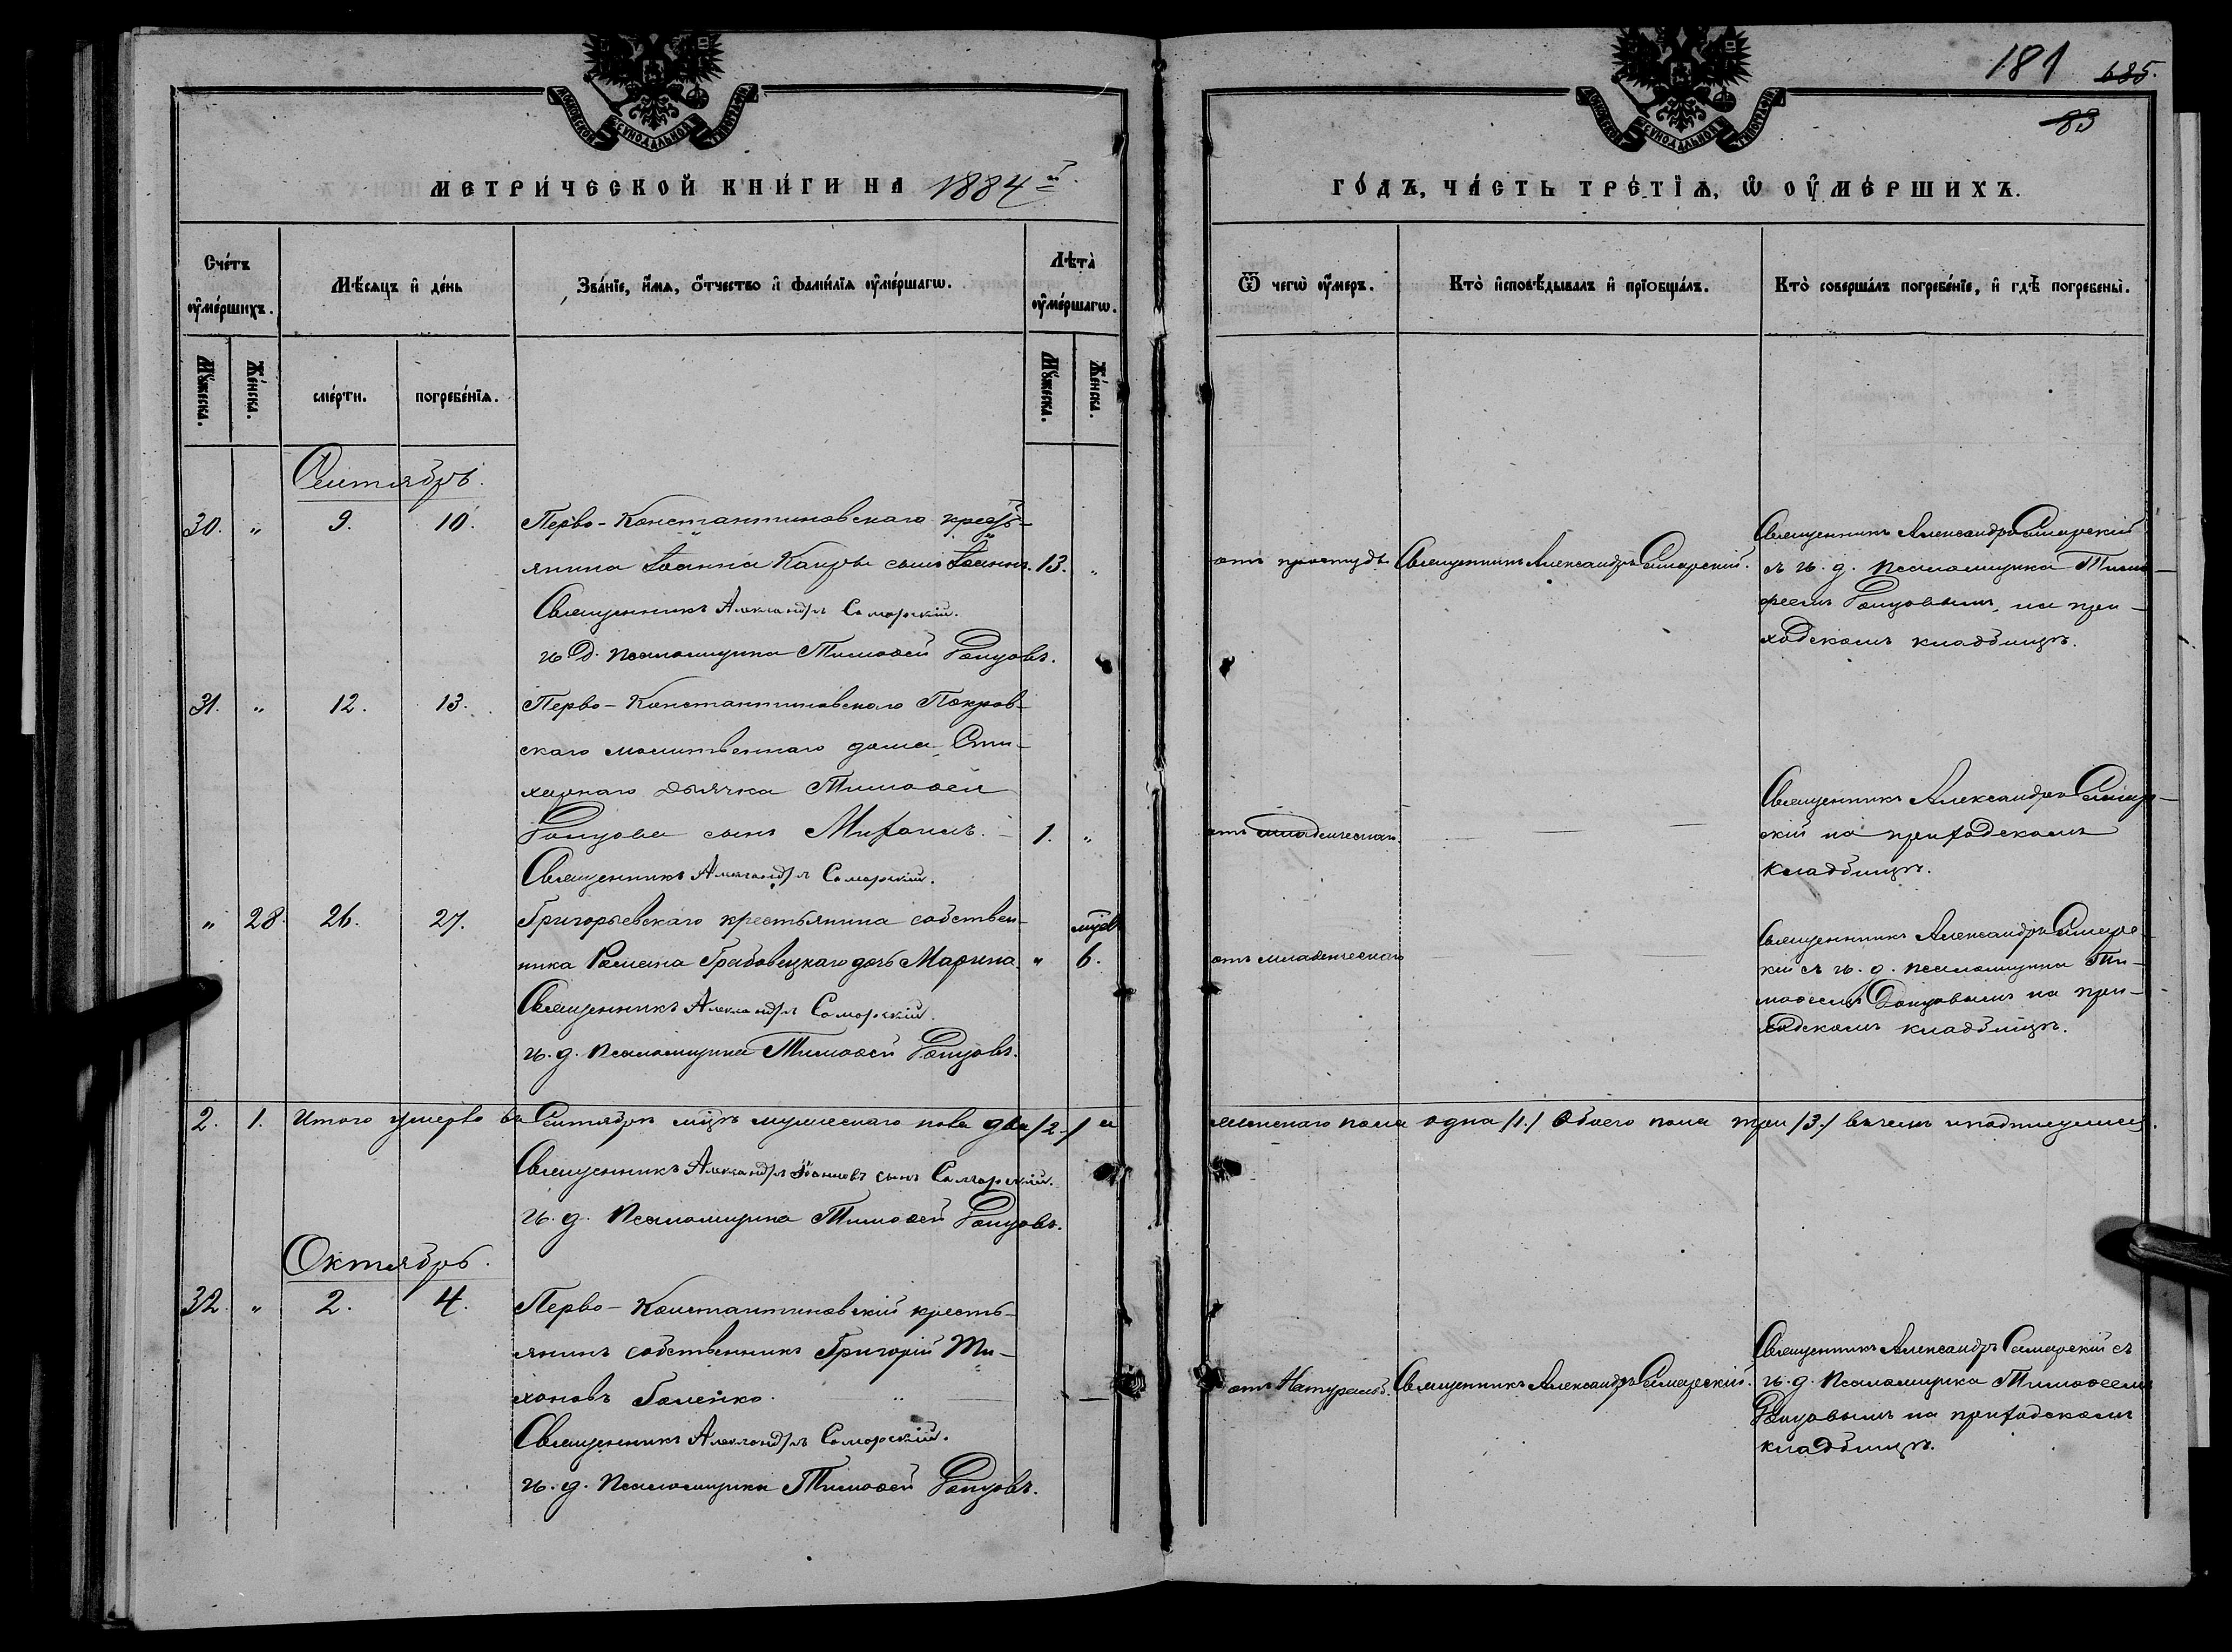 181 685.
83
МОСКОВСКОЙ СѴНОДАЛЬНОЙ ТИПОГРАФІИ
МОСКОВСКОЙ СѴНОДАЛЬНОЙ ТИПОГРАФІИ
МЕТРИ́ЧЕСКОЙ КНИ́ГИ НА 1884 й
ГО́ДЪ, ЧА́СТЬ ТРЕ́ТІѦ, Ѡ ОУ҆МЕ́РШИХЪ.
Сче́тъ оу҆ме́ршихъ.
Мѣ́сяцъ и҆ де́нь
Зва́нїе, и҆́мя, о҆́тчество и҆ фами́лїя оу҆ме́ршагѡ.
Лѣта̀ оу҆ме́ршагѡ.
Ѿ чегѡ̀ оу҆́меръ.
Кто̀ и҆сповѣ́дывалъ и҆ прїобща́лъ.
Кто̀ соверша́лъ погребе́нїе, и҆ гдѣ̀ погребены̀.
Мꙋ́жеска.
Же́нска.
сме́рти.
погребе́нїя.
Мꙋ́жеска.
Же́нска.
Сентябрь.
30. " 9. 10. Перво-Константиновскаго кресть-
янина Іоанна сынъ Іоаннъ. 13. "
Священникъ Александръ Самарскій.
и Д. Псаломщика Тимоѳей Ронцовъ.
отъ простуды Священникъ Александръ Самарскій.
Священникъ Александръ Самарскій
съ и. д. псаломщика Тимо-
феемъ Ронцовымъ, на при-
ходскомъ кладбищѣ.
31. " 12. 13. Перво-Константиновскаго Покров-
скаго молитвеннаго дома, Сти-
харнаго дьячка Тимоѳея
Ронцова сынъ Михаилъ. - 1. "
Священникъ Александръ Самарскій.
отъ младенческой.
Священникъ Александръ Самар-
скій на приходскомъ
кладбищѣ.
" 28. 26. 27. Григорьевскаго крестьянина собствен-
ника Романа Грабовецкаго дочь Марина. " мѣс. 6.
Священникъ Александръ Самарскій.
и. д. Псаломщика Тимоѳей Ронцовъ.
отъ младенческой
Священникъ Александръ Самарс-
кій съ и. д. псаломщика Ти-
моѳеемъ Ронцовымъ на при-
ходскомъ кладбищѣ.
2. 1. Итого умерло въ Сентябрѣ мцѣ мужескаго пола два /2./ и
женскаго пола одна /1./ Обоего пола три /3./ въ чемъ и подписуемся.
Священникъ Александръ Іоанновъ сынъ Самарскій.
и. д. Псаломщика Тимоѳей Ронцовъ.
Октябрь.
32. " 2. 4. Перво-Константиновскій кресть-
янинъ собственникъ Григорій Ти-
хоновъ Галейко.
Священникъ Александръ Самарскій.
и. д. Псаломщика Тимоѳей Ронцовъ.
отъ Натуральн. Священникъ Александръ Самарскій.
Священникъ Александръ Самарскій съ
и. д. Псаломщика Тимоѳеемъ
Ронцовымъ на приходскомъ
кладбищѣ.